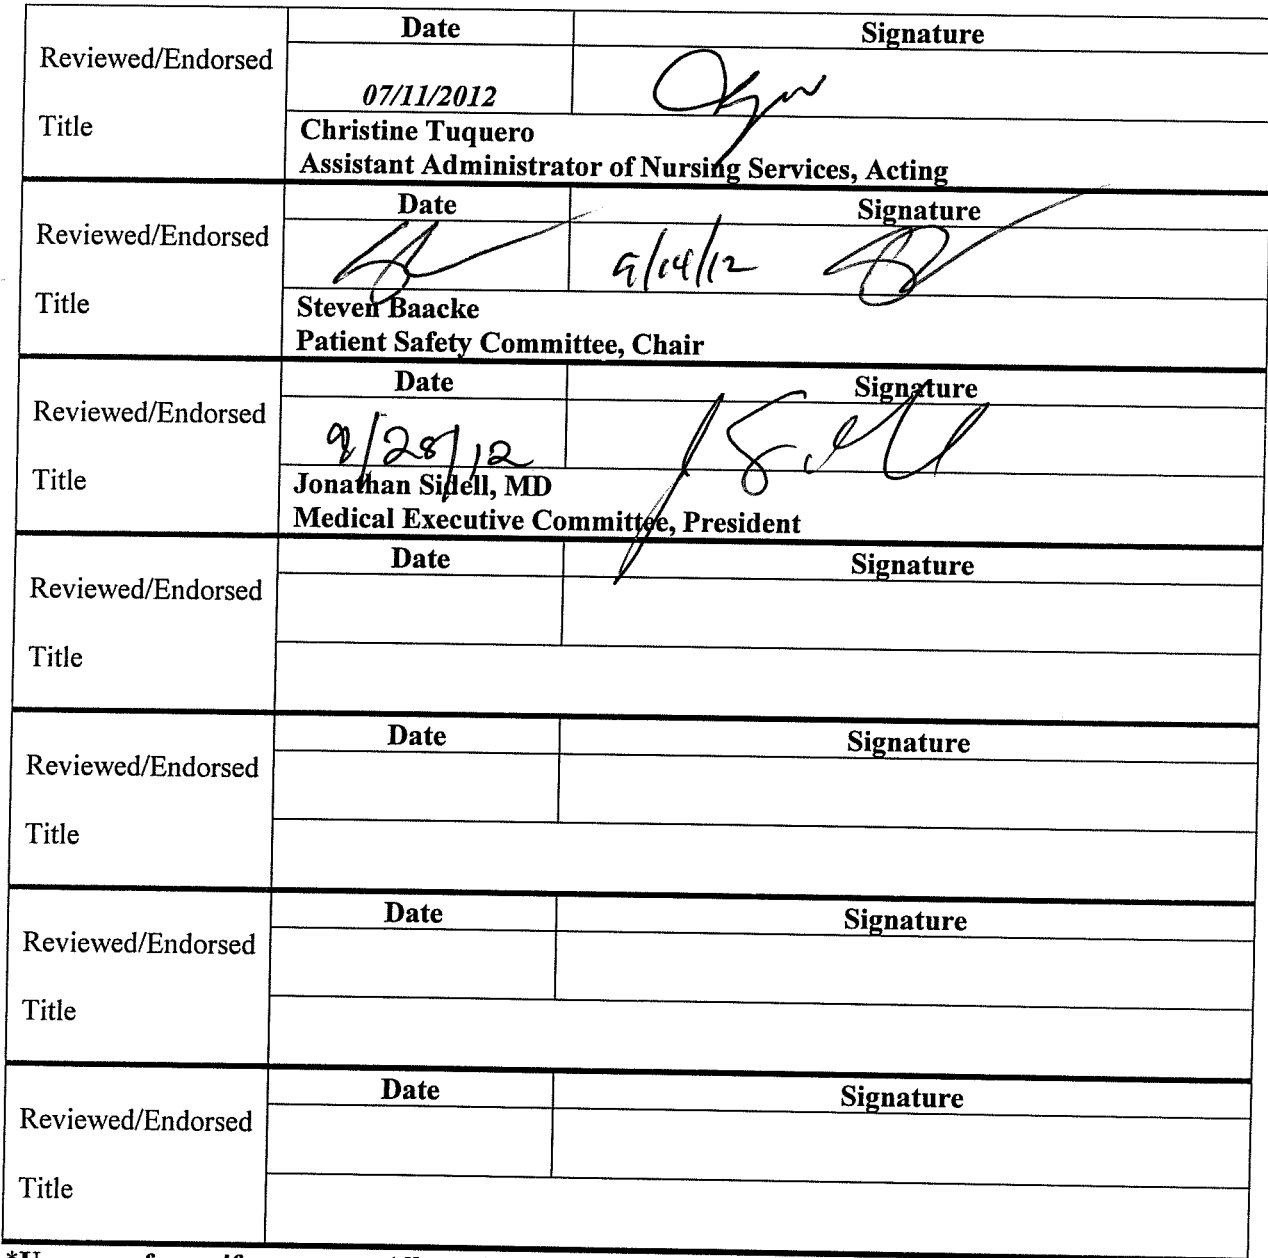 Date Signature
Reviewed/Endorsed
07/11/2012
Title
Christine Tuquero
Assistant Administrator of Nursing Services, Acting
Date Signature
Reviewed/Endorsed
9/14/12
Title
Steven Baacke
Patient Safety Committee, Chair
Date Signature
Reviewed/Endorsed
9/28/12
Title
Jonathan Sidell, MD
Medical Executive Committee, President
Date Signature
Reviewed/Endorsed
Title
Date Signature
Reviewed/Endorsed
Title
Date Signature
Reviewed/Endorsed
Title
Date Signature
Reviewed/Endorsed
Title